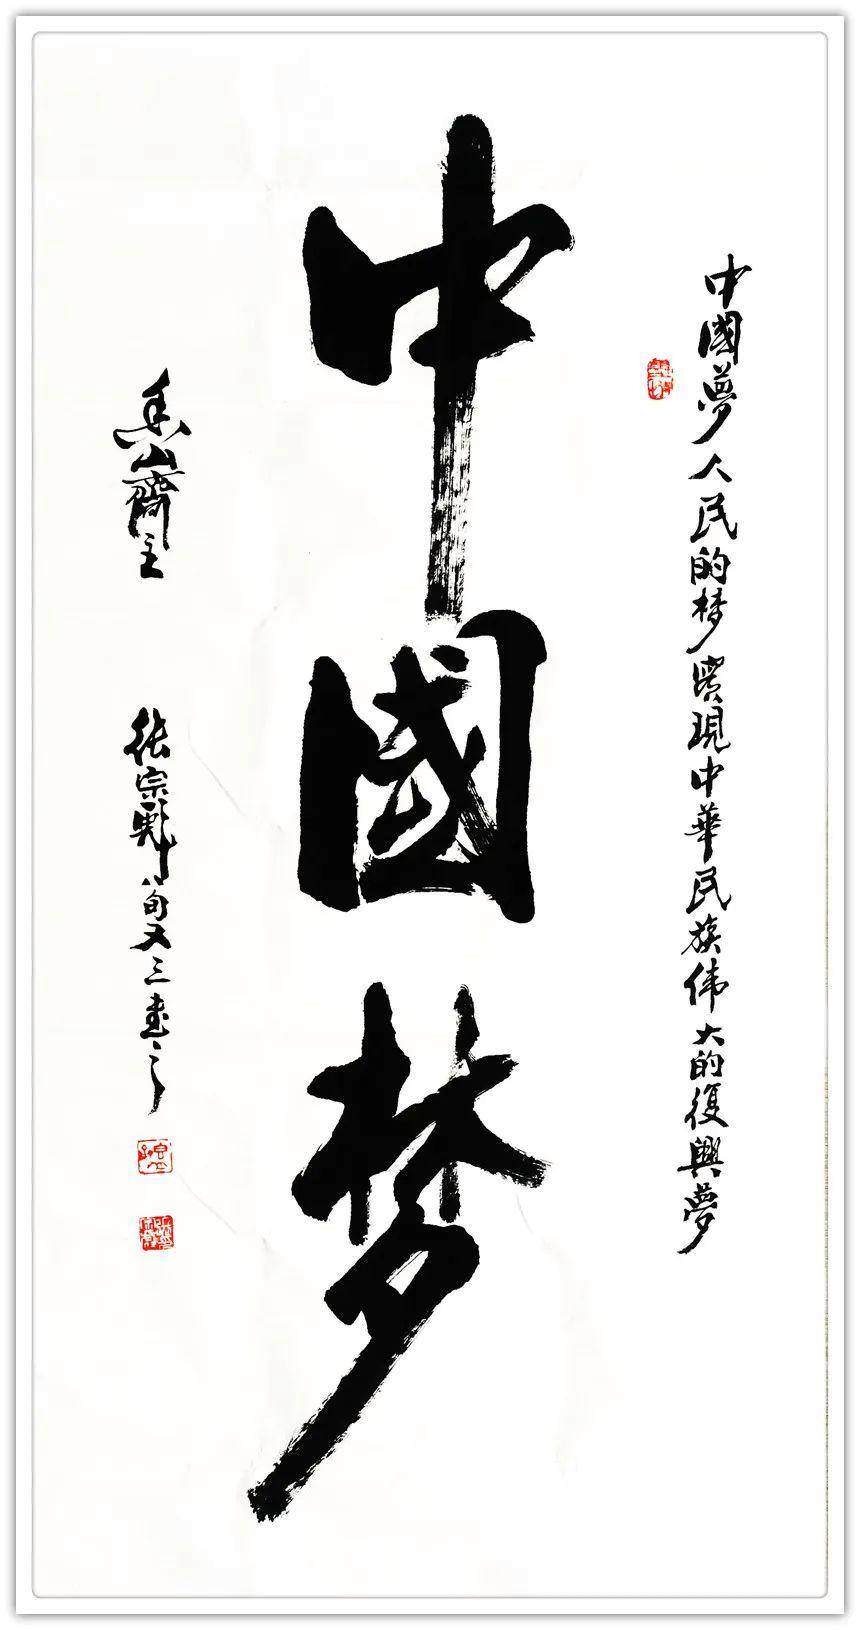 中國夢人民的梦實現中華民族伟大的復興夢
中國梦
山齋主
張宗彪八旬又三書之